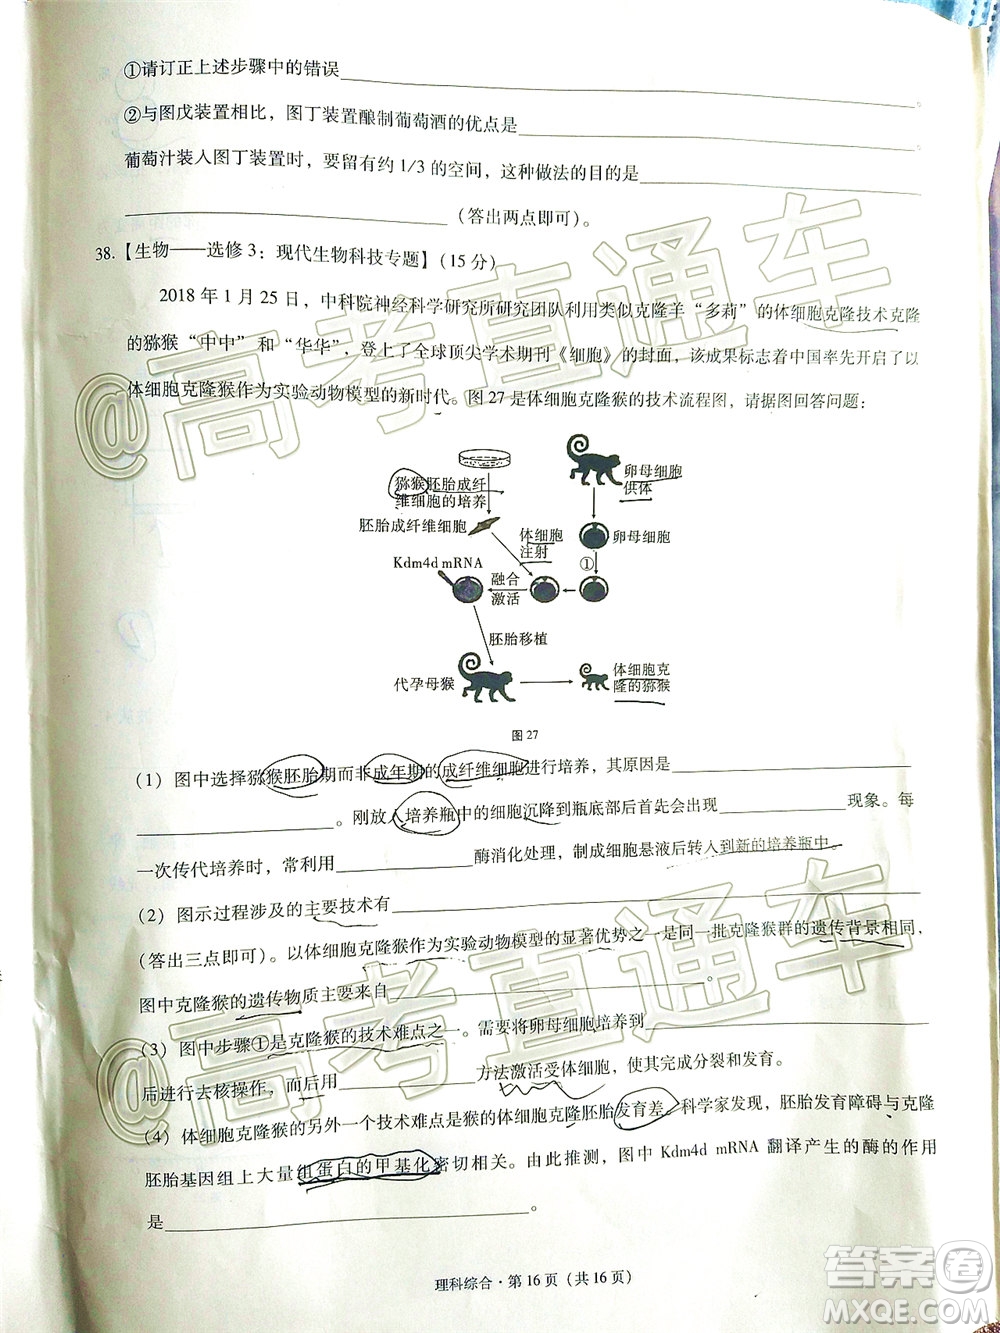 ①请订正上述步骤中的错误____。
②与图戊装置相比，图丁装置酿制葡萄酒的优点是____。
葡萄汁装入图丁装置时，要留有约 1/3 的空间，这种做法的目的是____
____（答出两点即可）。
38.【生物——选修 3：现代生物科技专题】（15 分）
2018 年 1 月 25 日，中科院神经科学研究所研究团队利用类似克隆羊“多莉”的体细胞克隆技术克隆
的猕猴“中中”和“华华”，登上了全球顶尖学术期刊《细胞》的封面，该成果标志着中国率先开启了以
体细胞克隆猴作为实验动物模型的新时代。图 27 是体细胞克隆猴的技术流程图，请据图回答问题：
猕猴胚胎成纤
维细胞的培养
卵母细胞
供体
胚胎成纤维细胞
体细胞
注射
卵母细胞
①
Kdm4d mRNA
融合
激活
胚胎移植
代孕母猴
体细胞克
隆的猕猴
图 27
（1）图中选择猕猴胚胎期而非成年期的成纤维细胞进行培养，其原因是____
____。刚放入培养瓶中的细胞沉降到瓶底部后首先会出现____现象。每
一次传代培养时，常利用____酶消化处理，制成细胞悬液后转入到新的培养瓶中。
（2）图示过程涉及的主要技术有____
（答出三点即可）。以体细胞克隆猴作为实验动物模型的显著优势之一是同一批克隆猴群的遗传背景相同，
图中克隆猴的遗传物质主要来自____。
（3）图中步骤①是克隆猴的技术难点之一。需要将卵母细胞培养到____
后进行去核操作，而后用____方法激活受体细胞，使其完成分裂和发育。
（4）体细胞克隆猴的另外一个技术难点是猴的体细胞克隆胚胎发育差。科学家发现，胚胎发育障碍与克隆
胚胎基因组上大量组蛋白的甲基化密切相关。由此推测，图中 Kdm4d mRNA 翻译产生的酶的作用
是____。
理科综合·第 16 页（共 16 页）
@高考直通车
@高考直通车
答案圈
MXQE.COM